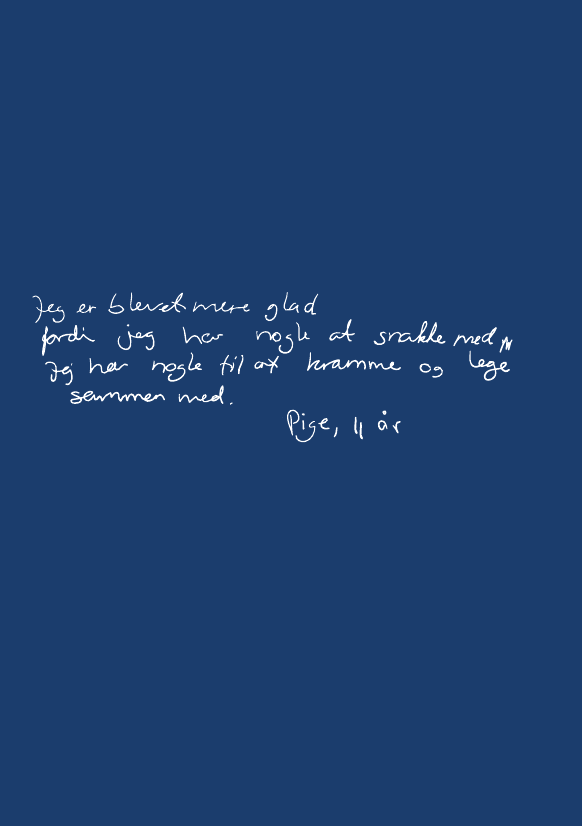 Jeg er blevet mere glad
fordi jeg har nogle at snakke med,
Jeg har nogle til at kramme og lege
sammen med.
Pige, 11 år